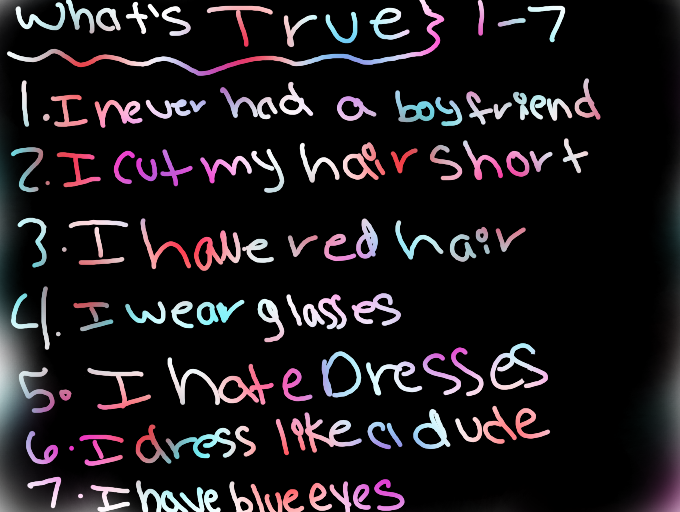 What's True} 1-7
1. I never had a boyfriend
2. I cut my hair short
3. I have red hair
4. I wear glasses
5. I hate Dresses
6. I dress like a dude
7. I have blue eyes